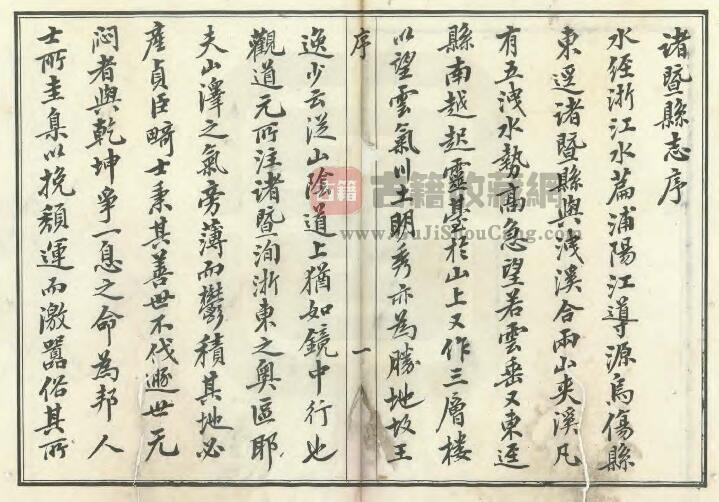 諸暨縣志序
水经浙江水篇浦陽江導源烏傷縣
東逕諸暨縣與洩溪合兩山夾溪凡
有五洩水勢高急望若雲垂又東逕
縣南越起靈臺於山上又作三層樓
以望雲氣川土明秀亦為勝地故王
序
一
逸少云從山陰道上猶如鏡中行也
觀道元所注諸暨洵浙東之奧區耶
夫山澤之氣旁薄而鬱積其地必
產貞臣畸士秉其善世不伐遯世无
悶者與乾坤爭一息之命為邦人
士所圭臬以挽頹運而激囂俗其所
古籍
古籍收藏網
www.GuJiShouCang.com